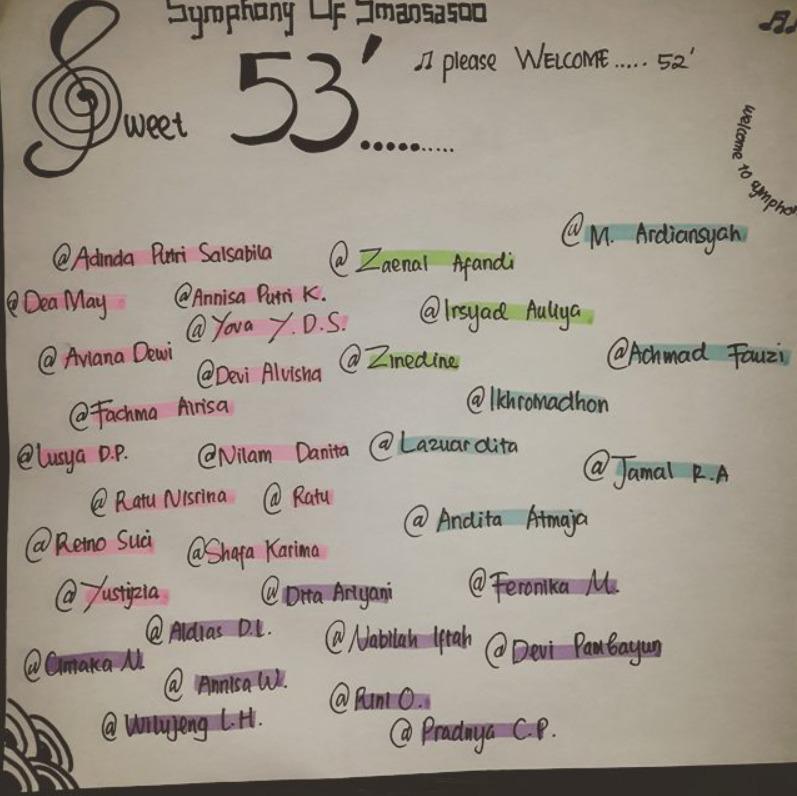 Symphony Of Smansasoo
Sweet 53'..........
♫ please WELCOME..... 52'
welcome to symphon
@M. Ardiansyah
@Adinda Putri Salsabila
@Zaenal Afandi
@Dea May
@Annisa Putri K.
@Irsyad Auliya
@Yova Y.D.S.
@Aviana Dewi
@Zinedine
@Achmad Fauzi
@Devi Alvisha
@Fachma Airisa
@Ikhromadhon
@Lusya D.P.
@Nilam Danita
@Lazuardita
@Jamal R.A
@Ratu Nisrina
@Ratu
@Andita Atmaja
@Retno Suci
@Shafa Karima
@Yustizia
@Dita Ariyani
@Feronika M.
@Aldias D.L.
@Nabilah Iftah
@Devi Pambayun
@Cimaka N.
@Annisa W.
@Rini O.
@Wilujeng L.H.
@Pradnya C.P.